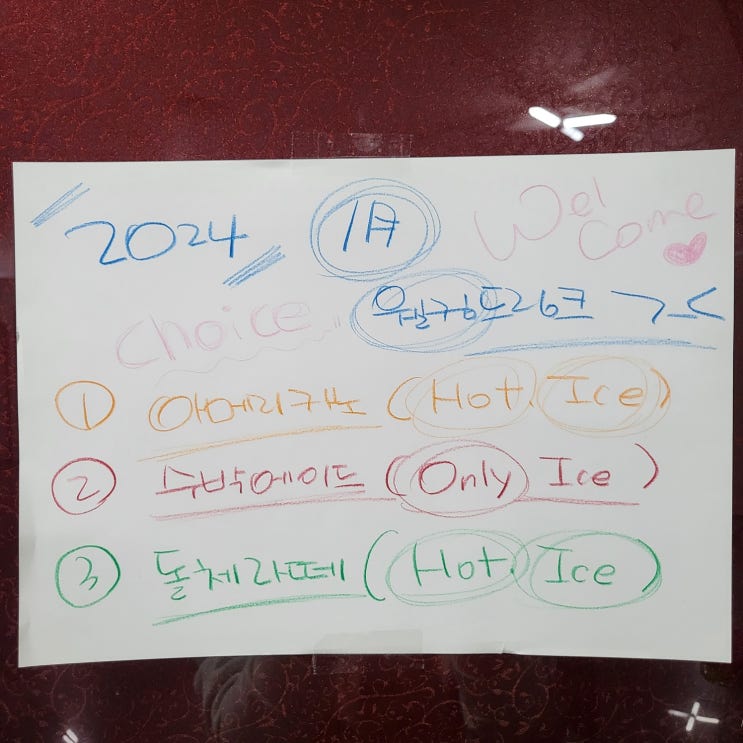 2024 1A Welcome
Choice 웰컴드링크 >_<
① 아메리카노 (Hot, Ice)
② 수박에이드 (Only Ice)
③ 돌체라떼 (Hot, Ice)